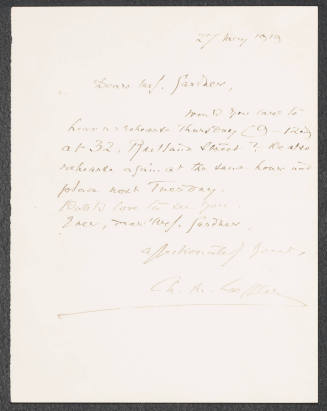 27 May 1919
Dear Mrs. Gardner,
would you care to
hear a rehearse Thursday
at 32, Rutland Street? We also
rehearse again at the same hour and
place next Tuesday.
love to see you.
Ever, dear Mrs. Gardner
affectionately yours,
Ch. M. Loeffler